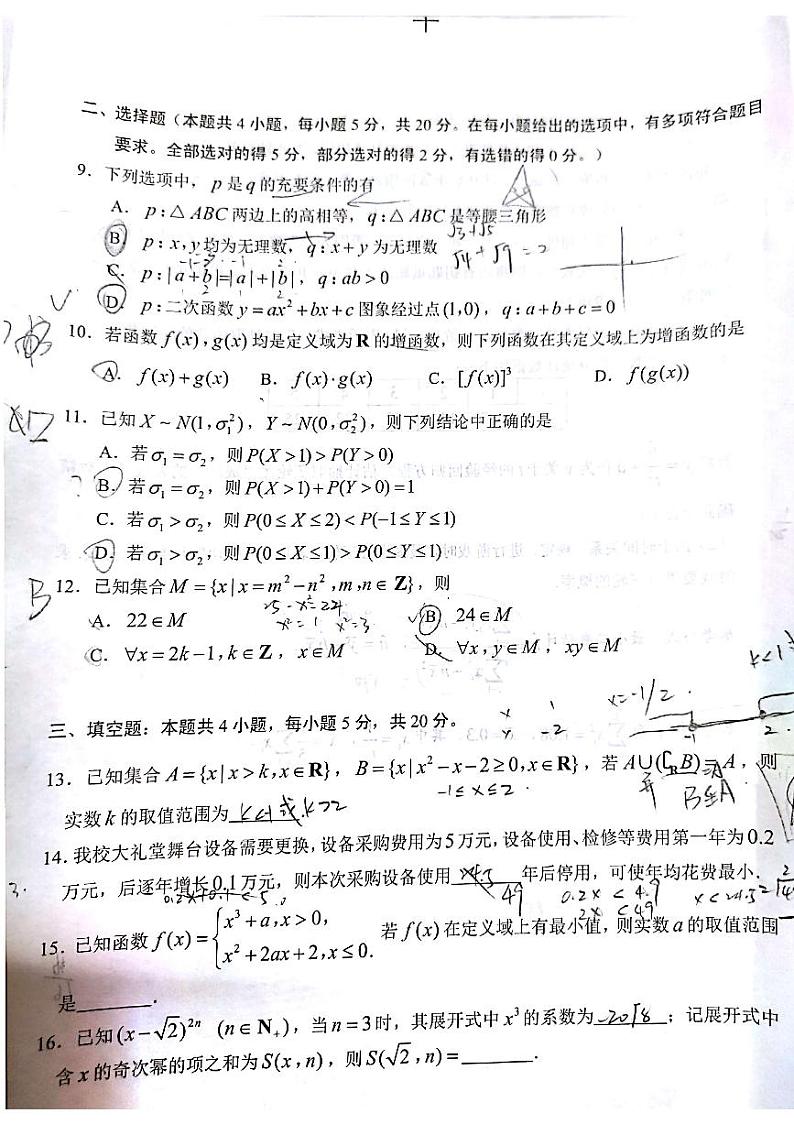 二、选择题（本题共 4 小题，每小题 5 分，共 20 分。在每小题给出的选项中，有多项符合题目
要求。全部选对的得 5 分，部分选对的得 2 分，有选错的得 0 分。）
9. 下列选项中，p 是 q 的充要条件的有
A. p:△ABC 两边上的高相等，q:△ABC 是等腰三角形
√3+√5
B. p:x,y 均为无理数，q:x+y 为无理数
√4+√9=2
C. p:|a+b|=|a|+|b|，q:ab>0
D. p:二次函数 y=ax²+bx+c 图象经过点(1,0)，q:a+b+c=0
10. 若函数 f(x),g(x) 均是定义域为 R 的增函数，则下列函数在其定义域上为增函数的是
A. f(x)+g(x) B. f(x)·g(x) C. [f(x)]³ D. f(g(x))
11. 已知 X~N(1,σ₁²)，Y~N(0,σ₂²)，则下列结论中正确的是
A. 若σ₁=σ₂，则P(X>1)>P(Y>0)
? B. 若σ₁=σ₂，则P(X>1)+P(Y>0)=1
C. 若σ₁>σ₂，则P(0≤X≤2)<P(-1≤Y≤1)
D. 若σ₁>σ₂，则P(0≤X≤1)>P(0≤Y≤1)
B 12. 已知集合 M={x|x=m²-n²,m,n∈Z}，则
25-x²=24
A. 22∈M x²=1 x²=3 B. 24∈M
C. ∀x=2k-1,k∈Z，x∈M D. ∀x,y∈M，xy∈M
k<1
x=-1/2.
三、填空题：本题共 4 小题，每小题 5 分，共 20 分。
x 1
x -2
-1 2
13. 已知集合 A={x|x>k,x∈R}，B={x|x²-x-2≥0,x∈R}，若 A∪(∁RB)=A，则
-1≤x≤2 并 B⊆A
实数 k 的取值范围为 k<1或k>2
14. 我校大礼堂舞台设备需要更换,设备采购费用为5万元,设备使用、检修等费用第一年为0.2
3. 万元，后逐年增长0.1万元，则本次采购设备使用____年后停用，可使年均花费最小.
0.2x+0.1<5.0 49 0.2x<4.9 x<24.5
2x<49
15. 已知函数 f(x)={x³+a,x>0, x²+2ax+2,x≤0. 若 f(x)在定义域上有最小值,则实数 a 的取值范围
是____.
16. 已知(x-√2)²ⁿ (n∈N₊)，当 n=3时，其展开式中 x³的系数为 -20√8；记展开式中
含 x 的奇次幂的项之和为S(x,n)，则S(√2,n)=____.